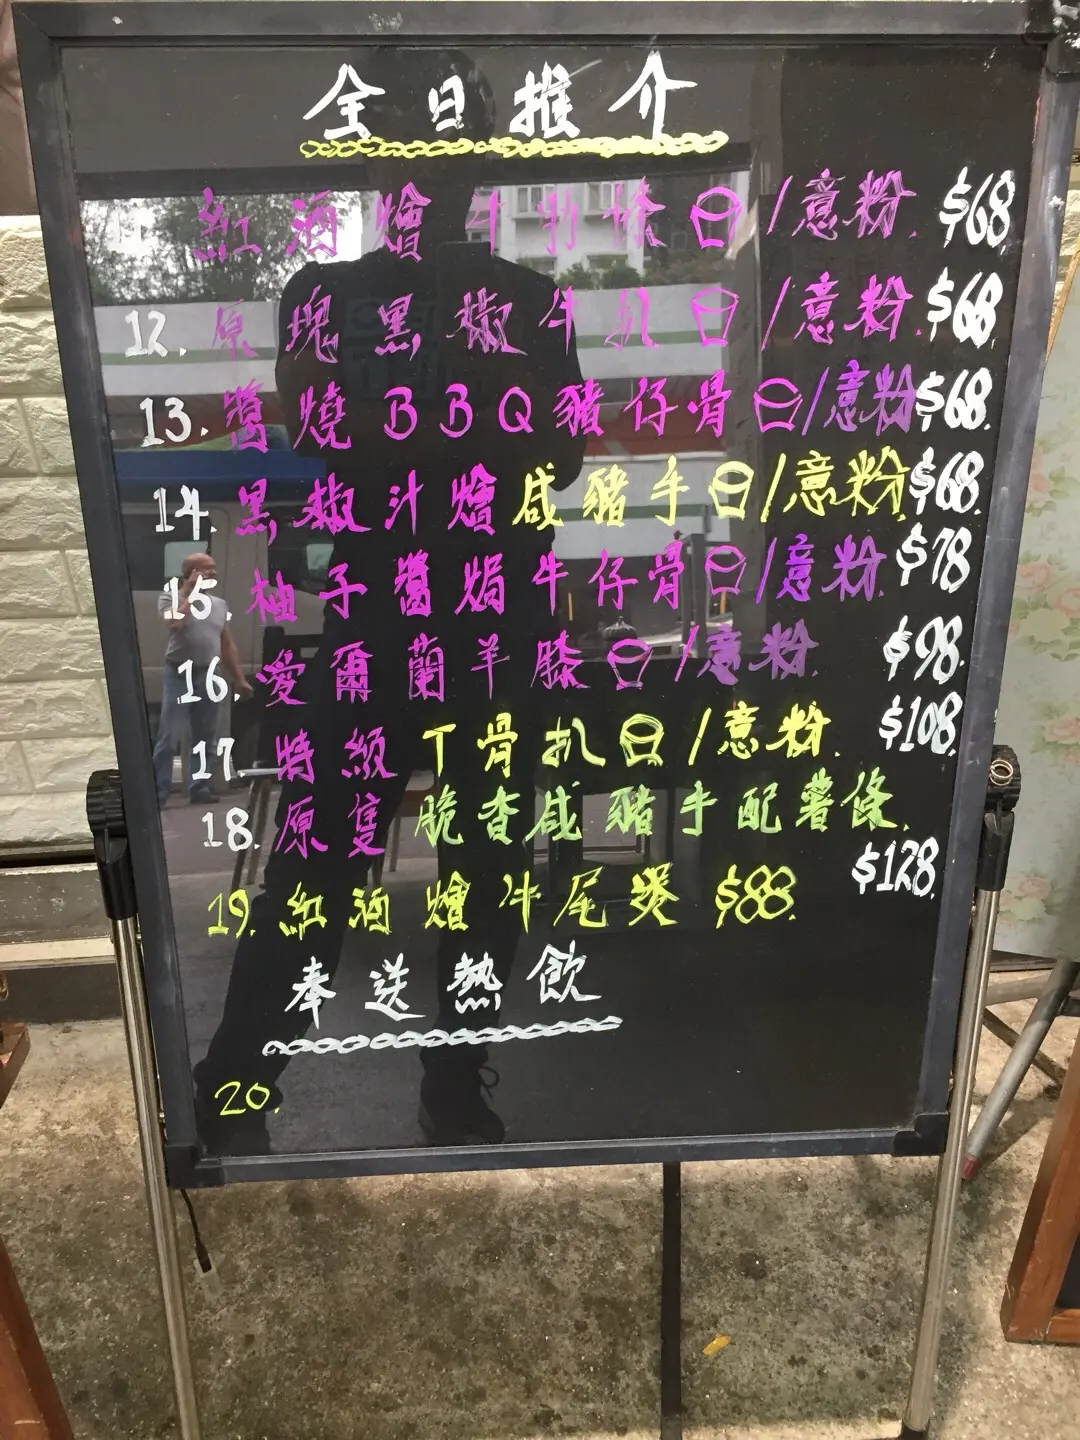 全日推介
紅酒燴牛肋條 /意粉. $68.
12. 原塊黑椒牛扒 /意粉. $68.
13. 醬燒BBQ豬仔骨 /意粉 $68.
14. 黑椒汁燴咸豬手 /意粉. $68.
15. 柚子醬焗牛仔骨 /意粉. $78.
16. 愛爾蘭羊膝 /意粉. $98.
17. 特級T骨扒 /意粉. $108.
18. 原隻脆香咸豬手配薯條. $128.
19. 紅酒燴牛尾煲 $88.
奉送熱飲
20.